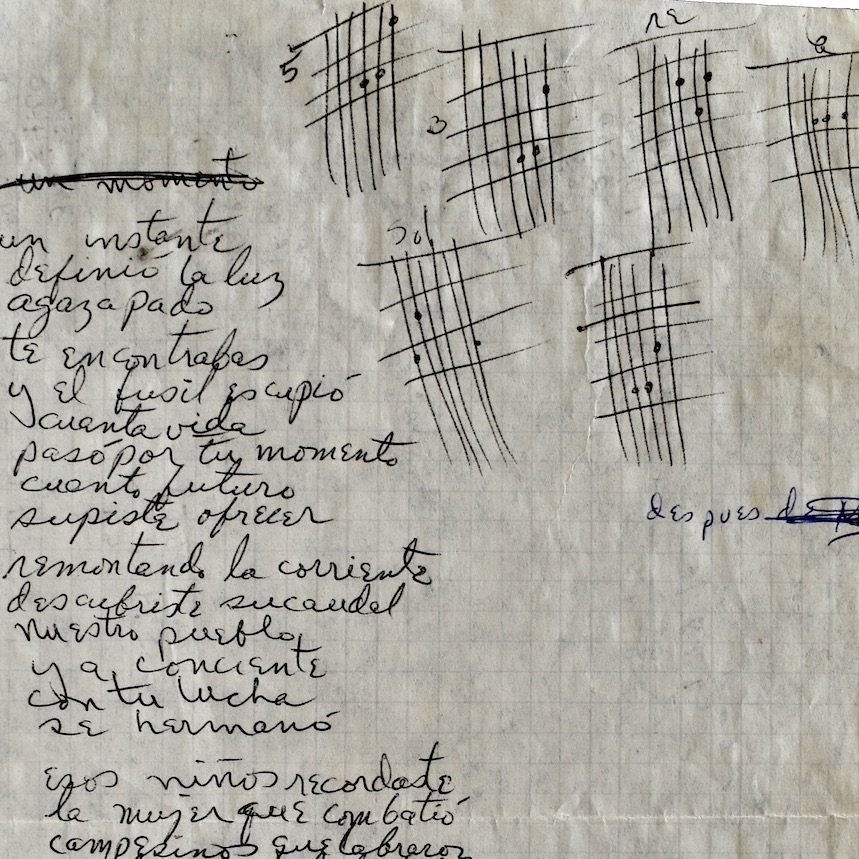 5
3
RE
a
Sol
un momento
un instante
definió la luz
agazapado
te encontrabas
y el fusil escupió
cuanta vida
pasó por tu momento
cuanto futuro
supiste ofrecer
remontando la corriente
descubriste su caudal
nuestro pueblo
ya conciente
con tu lucha
se hermanó
esos niños recordaste
la mujer que combatió
campesinos que labraron
despues de